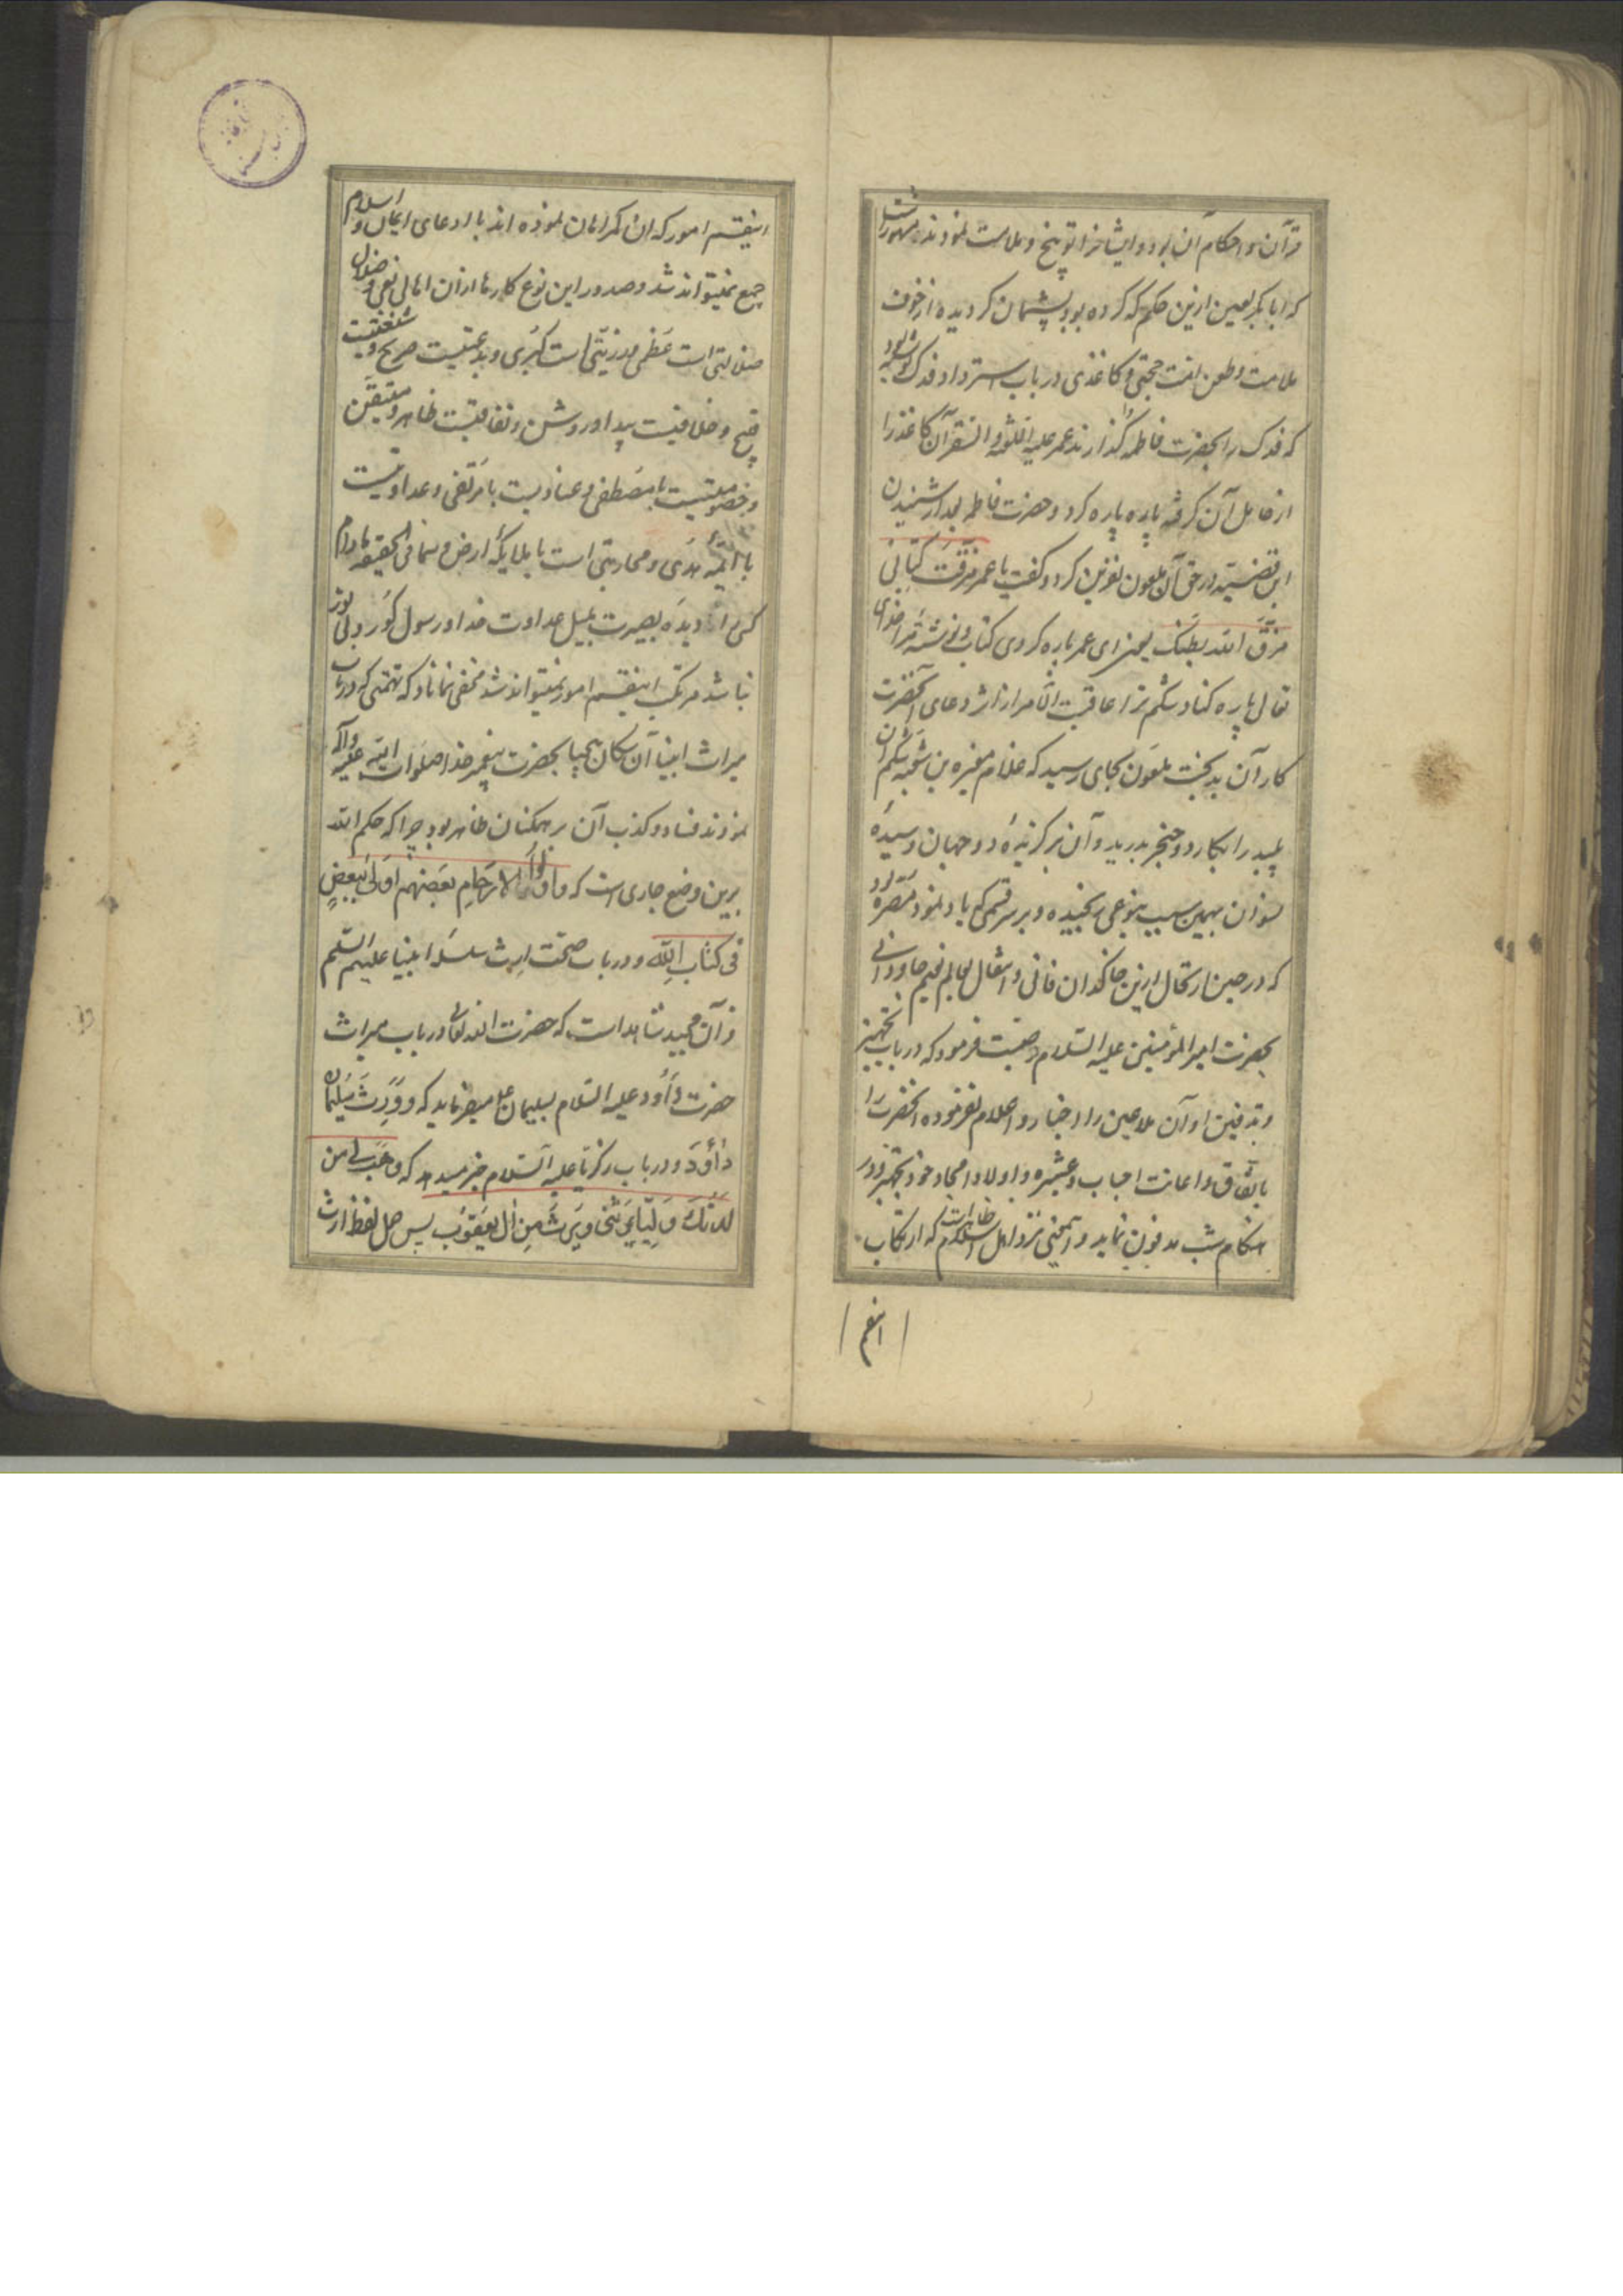 قرآن و احکام آن بود و ایشانرا توبیخ و ملامت نمودند مشهور است
که ابا بکر لعین ازین حکم که کرده بود پشیمان کردیده از خوف
ملامت و طعن امت حجتی و کاغذی در باب استرداد فدک نوشته بود
که فدک را بحضرت فاطمه کذارند عمر علیه اللعنة و النیران کاغذ را
از حامل آن کرفته پاره پاره کرد و حضرت فاطمه بعد از شنیدن
این قضیه در حق آن ملعون نفرین کرد و کفت یا عمر مزقت کتابی
مزق الله بطنک یعنی ای عمر پاره کردی کتاب و نوشته مرا خدای
تعالی پاره کناد شکم ترا عاقبت الامر از اثر دعای آنحضرت
کار آن بدبخت ملعون بجای رسید که غلام مغیره بن شعبه شکم آن
پلید را بکارد و خنجر بدرید و آن برکزیدهٔ دو جهان و سیدهٔ
نسوان بهمین سبب بنوعی رنجیده و بر سر قسمی که یاد نمود مصره بود
که در حین ارتحال ازین خاکدان فانی و انتقال بعالم نعیم جاودانی
بحضرت امیر المؤمنین علیه السلام وصیت فرمود که در باب تجهیز
و تدفین او آن ملاعین را اخبار و اعلام نفرموده آنحضرت را
باتفاق و اعانت احباب و عشیره و اولاد امجاد خود بتجهیز و در
هنکام شب مدفون نماید و آنمعنی نزد اهل اسلام ظاهر است که ارتکاب
اینقسم
اینقسم امور که آن کمراهان نموده اند با ادعای ایمان و اسلام
جمع نمیتواند شد و صدور این نوع کارها از آن اهالی بغی و ضلال
ضلالتی است عظمی و رزیتی است کبری و بدعتیست صریح و شنعتیست
قبیح و خلافیست پیدا و روشن و نفاقیست ظاهر و متیقن
و خصومتیست با مصطفی و عنادیست با مرتضی و عداوتیست
با ائمه هدی و محاربتی است با ملایکه ارض و سما فی الحقیقه مادام
کسی را دیده بصیرت بمیل عداوت خدا و رسول کور و بی نور
نباشد مرتکب اینقسم امور نمیتواند شد مخفی نماناد که تهمتی که در باب
میراث انبیا آن سکان بیحیا بحضرت پیغمبر خدا صلوات الله علیه و آله
نمودند فساد و کذب آن بر همکنان ظاهر بود چرا که حکم الله
برین وضع جاری است که و اولوا الارحام بعضهم اولی ببعض
فی کتاب الله و در باب صحت ارث سلسله انبیا علیهم السلم
قرآن مجید شاهد است که حضرت الله تعالی در باب میراث
حضرت داود علیه السلام بسلیمان ع میفرماید که و ورث سلیمان
داود و در باب زکریا علیه السلام خبر میدهد که فهب لی من
لدنک ولیا یرثنی ویرث من آل یعقوب پس حمل لفظ ارث